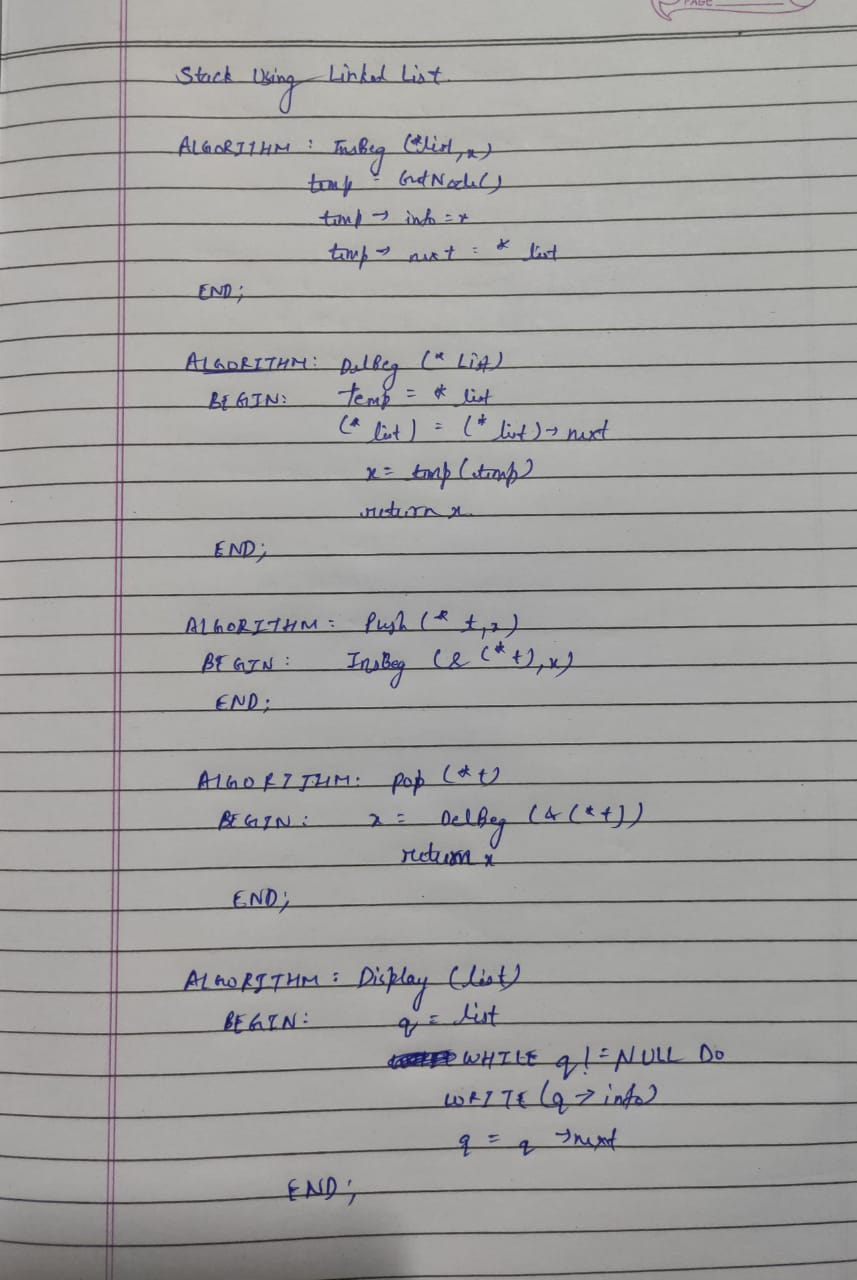 PAGE
Stack Using Linked List
ALGORITHM : InsBeg (*list, x)
temp = GetNode()
temp → info = x
temp → next = * list
END;
ALGORITHM: DelBeg (* List)
BEGIN: temp = * list
(* list) = (* list) → next
x = tmp (temp)
return x
END;
ALGORITHM = Push (* t, x)
BEGIN : InsBeg (& (*t), x)
END;
ALGORITHM: pop (*t)
BEGIN : x = DelBeg (& (*t))
return x
END;
ALGORITHM : Display (list)
BEGIN: q = list
WHILE q != NULL DO
WRITE (q → info)
q = q → next
END;